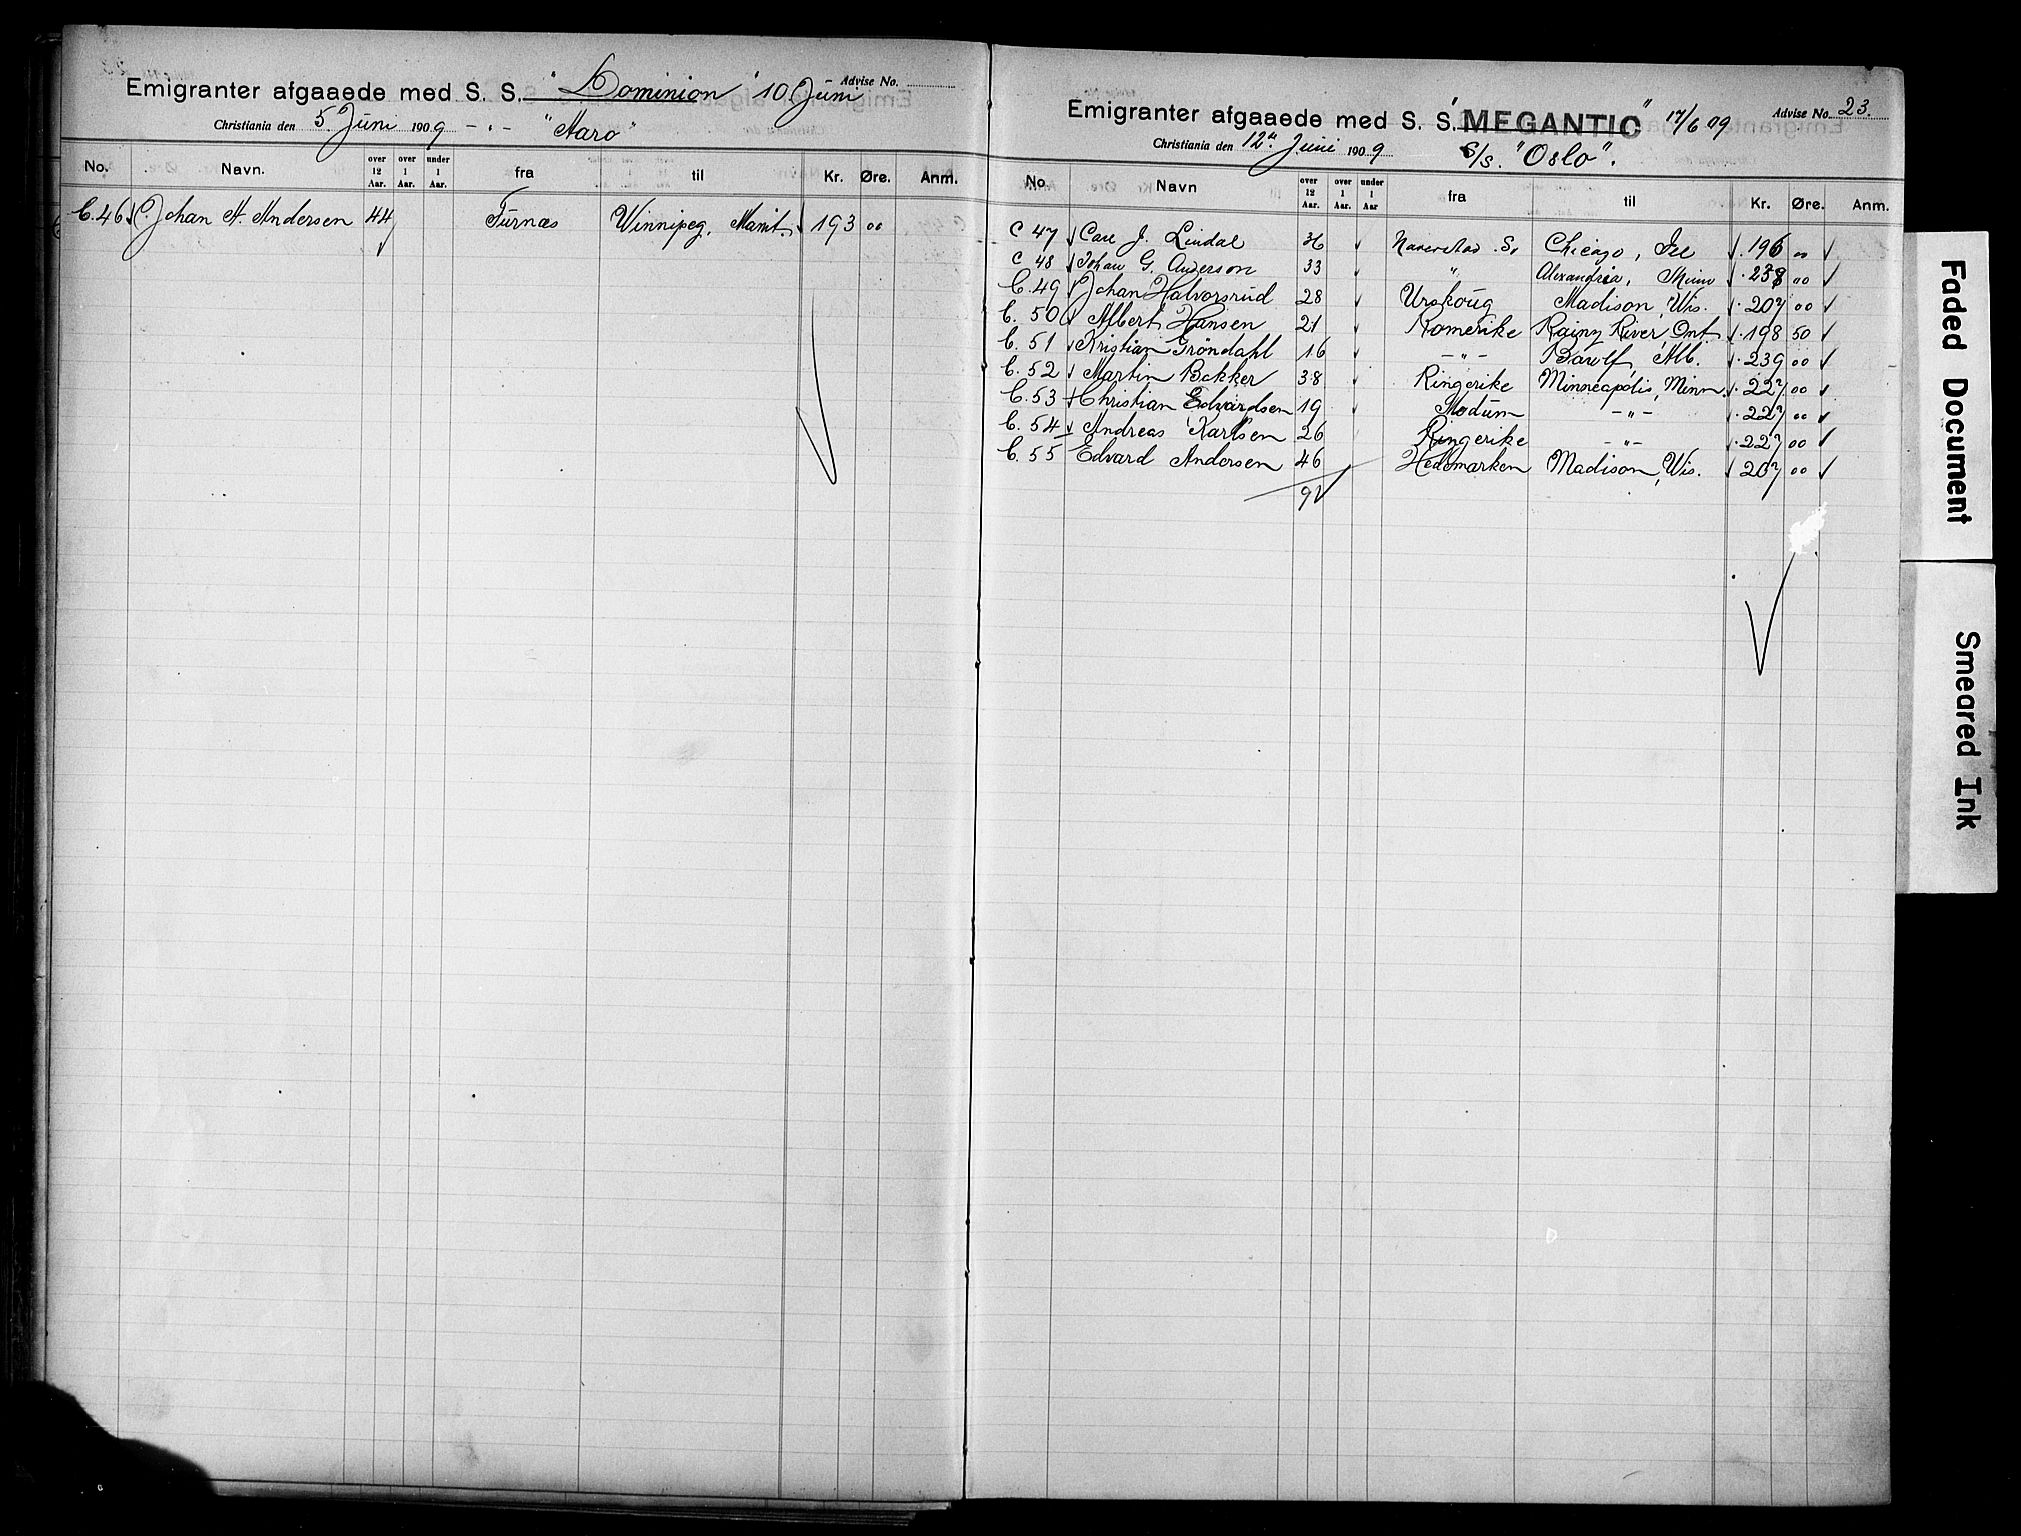 Emigranter afgaaede med S. S. "Dominion" 10. Juni Advise No.
Christiania den 5. Juni 1909 - " - "Aaro"
No. Navn. over 12 Aar. over 1 Aar. under 1 Aar. fra til Kr. Øre. Anm.
C. 46 Johan A. Andersen 44 Furnæs Winnipeg, Manit. 193 00
Emigranter afgaaede med S. S. "MEGANTIC" 17/6 09 Advise No. 23.
Christiania den 12te Juni 1909 S/S. "Oslo".
No. Navn over 12 Aar. over 1 Aar. under 1 Aar fra til Kr. Øre. Anm.
C 47 Carl J. Lindal 36 Naverstad. Sv Chicago, Ill 196 00
C 48 Johan G. Anderson 33 " Alexandria, Minn 238 00
C. 49 Johan Halvorsrud 28 Urskoug Madison, Wis. 207 00
C. 50 Albert Hansen 21 Romerike Rainy River, Ont 198 50
C. 51 Kristian Gröndahl 16 - " - Bawlf, Alb. 239 00
C. 52 Martin Bakker 38 Ringerike Minneapolis, Minn. 227 00
C. 53 Christian Edvardsen 19 Modum - " - 227 00
C. 54 Andreas Karlsen 26 Ringerike - " - 227 00
C. 55 Edvard Andersen 46 Hedemarken Madison, Wis. 207 00
9
Faded Document
Smeared Ink